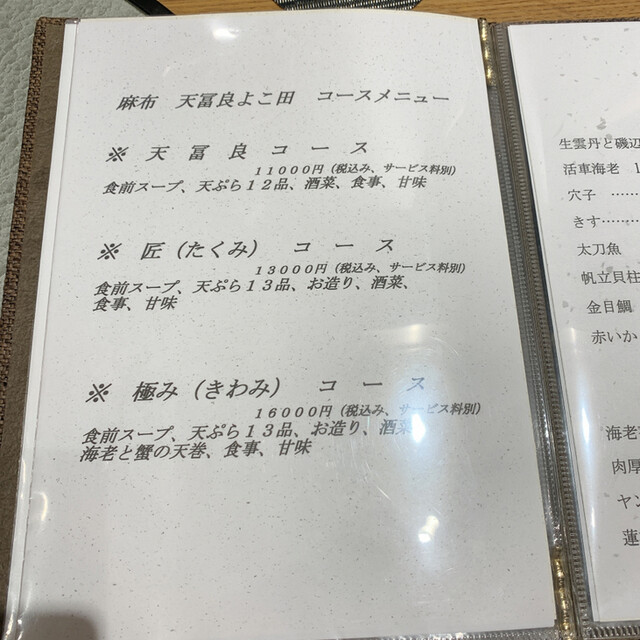 麻布 天冨良よこ田 コースメニュー
※ 天 冨 良 コ ー ス
11000円(税込み、サービス料別)
食前スープ、天ぷら12品、酒菜、食事、甘味
※ 匠(たくみ) コ ー ス
13000円(税込み、サービス料別)
食前スープ、天ぷら13品、お造り、酒菜、
食事、甘味
※ 極み(きわみ) コ ー ス
16000円(税込み、サービス料別)
食前スープ、天ぷら13品、お造り、酒菜、
海老と蟹の天巻、食事、甘味
生雲丹と磯辺
活車海老 1
穴子………
きす………
太刀魚
帆立貝柱
金目鯛
赤いか
海老
肉厚
ヤン
蓮